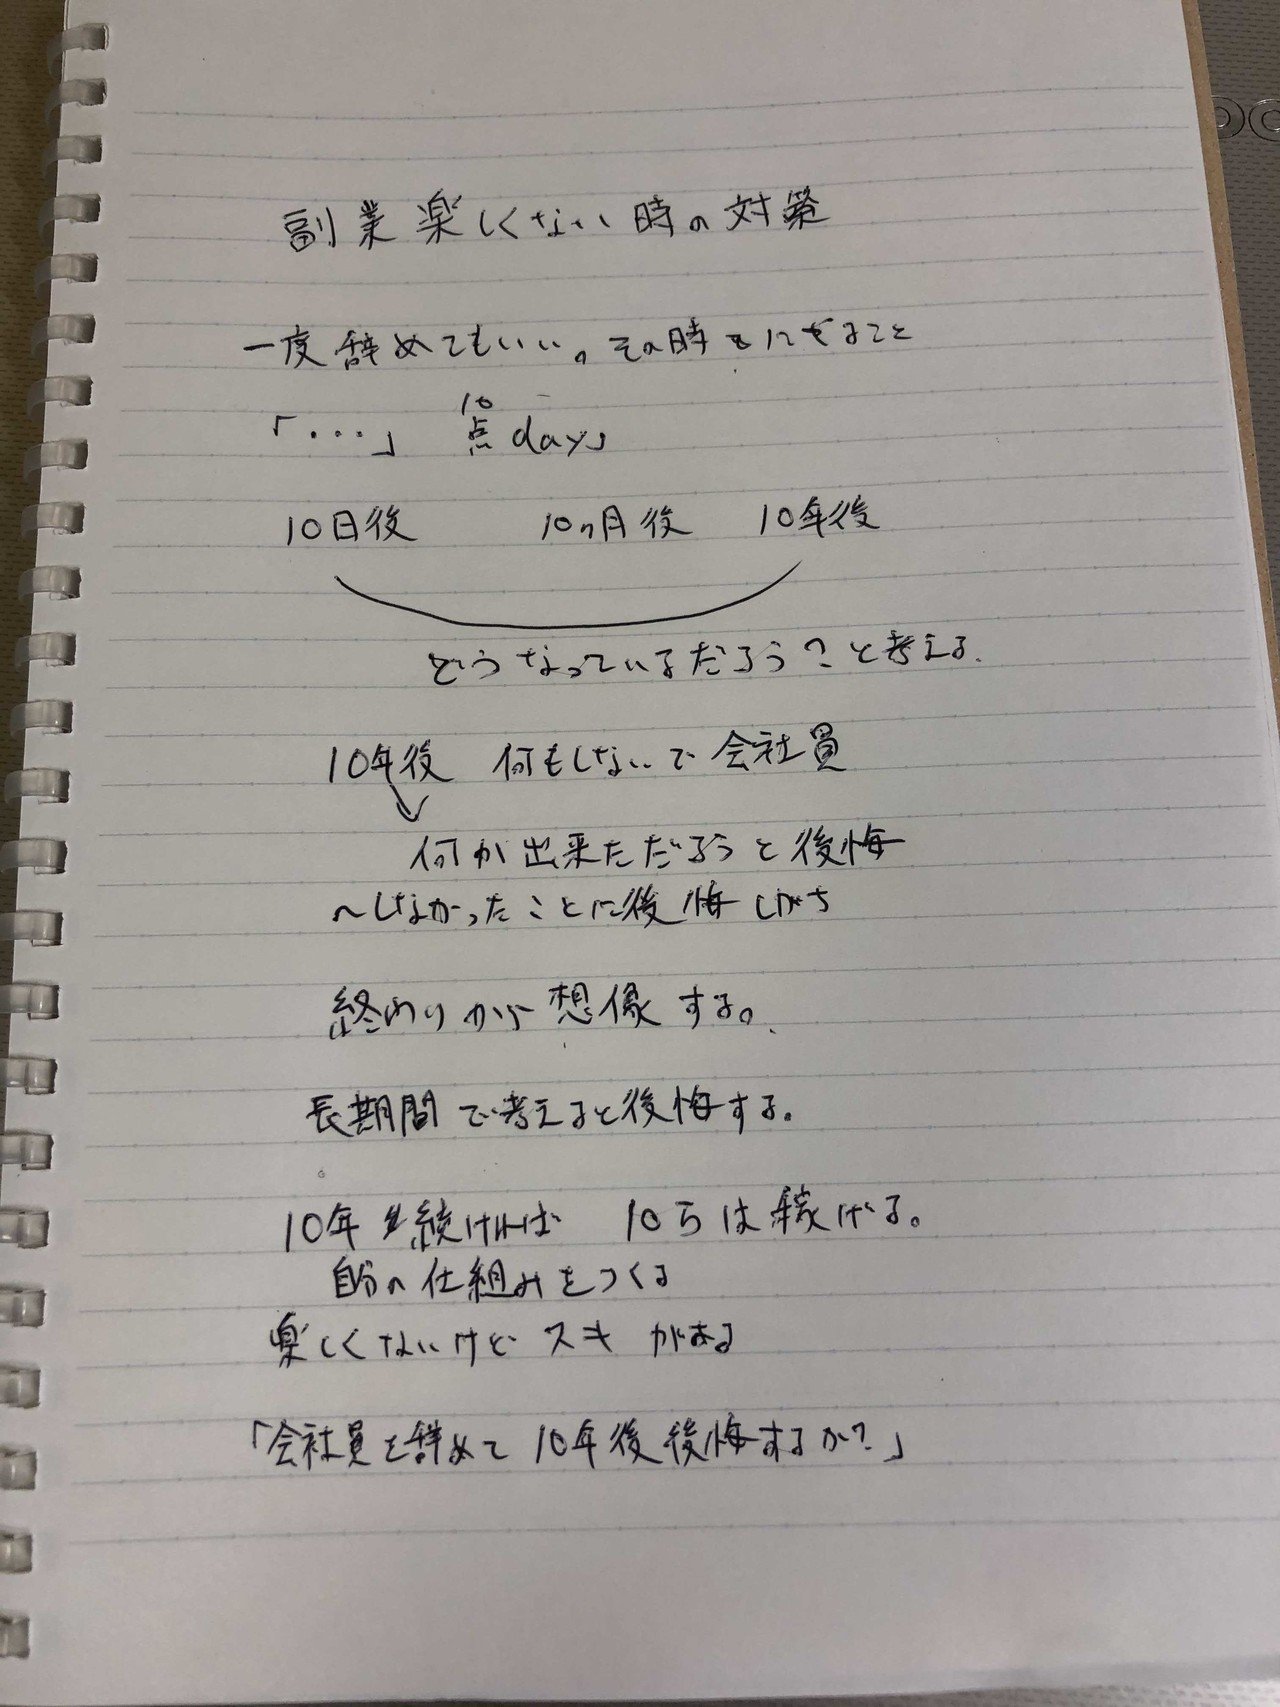 副業楽しくない時の対策
一度辞めてもいい。その時にすること
「・・・」 10点day」
10日後 10ヶ月後 10年後
どうなっているだろう?と考える.
10年後 何もしないで会社員
何か出来ただろうと後悔
〜しなかったことに後悔しがち
終わりから想像する。
長期間で考えると後悔する。
10年続ければ 10らは稼げる。
自分の仕組みをつくる
楽しくないけど スキがある
「会社員を辞めて10年後後悔するか?」